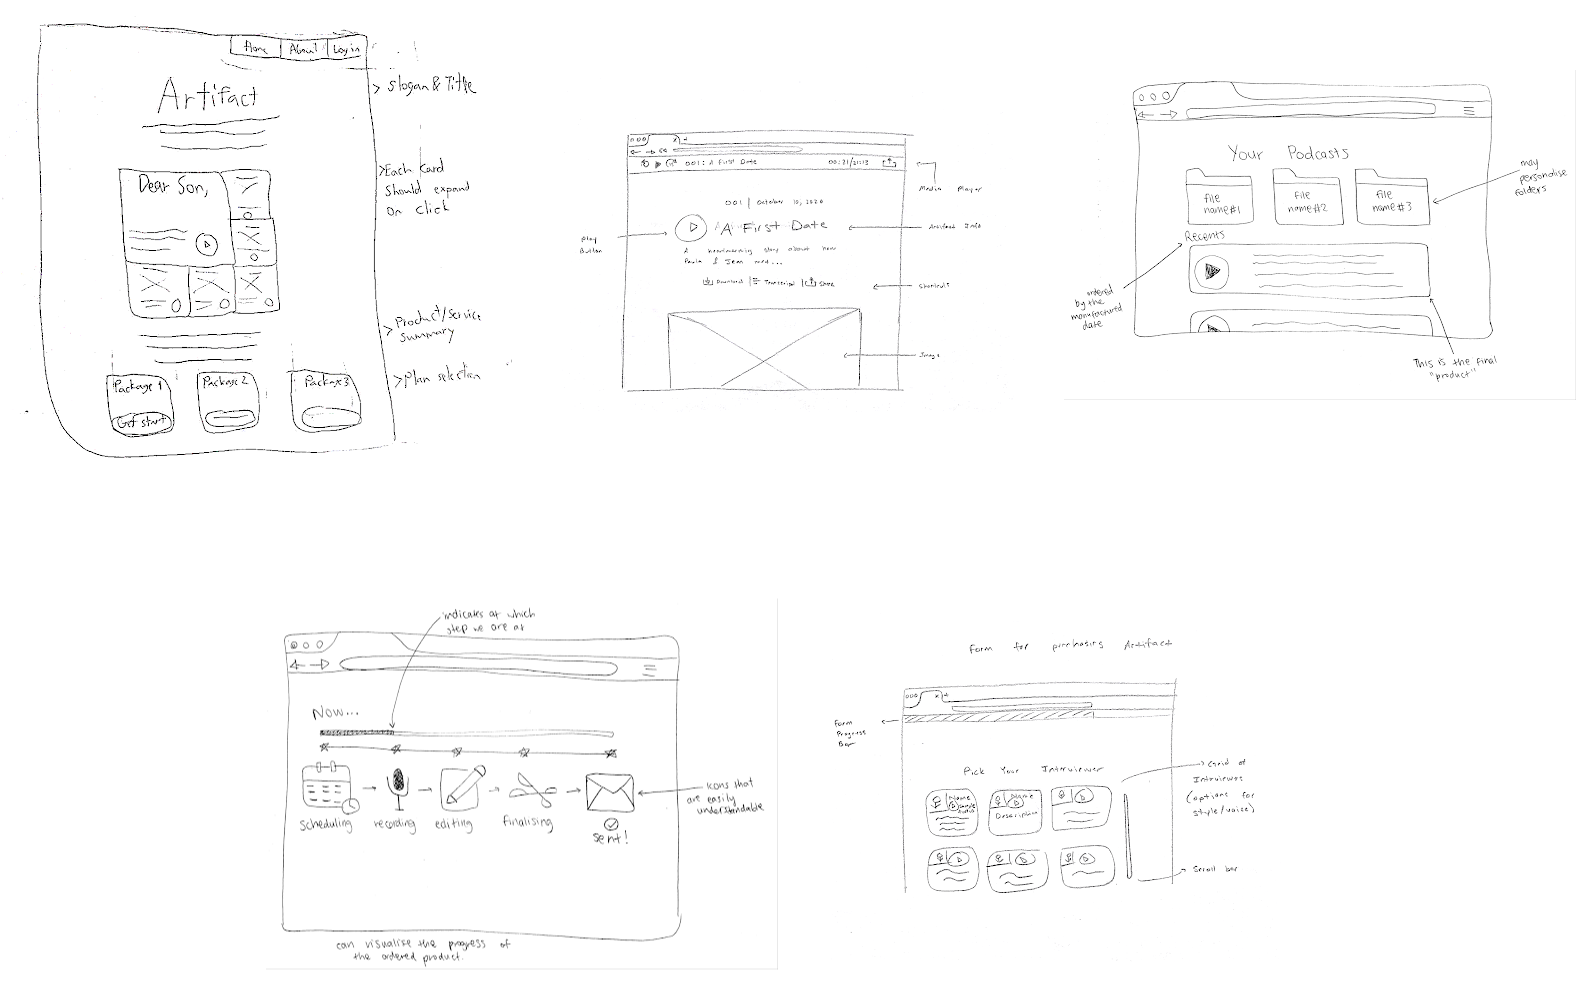 Home About Login
Artifact
> Slogan & Title
> Each Card
should expand
on click
Dear Son,
> Product/Service
summary
> Plan selection
Package 1
Package 2
Package 3
Get start
001: A First Date
00:31/21:13
Media Player
001 | October 10, 2020
Play
Button
A First Date
Artifact Info
A heartwarming story about how
Paula & Jean met...
Download | Transcript | Share
Shortcuts
Image
Your Podcasts
file
name#1
file
name#2
file
name#3
may
personalise
folders
Recents
ordered
by the
manufactured
date
This is the final
"product"
indicates at which
step we are at
Now...
scheduling
recording
editing
finalising
sent!
icons that
are easily
understandable
can visualise the progress of
the ordered product.
Form for purchasing Artifact
Form
Progress
Bar
Pick Your Interviewer
Name
Sample
Audio
Name
Description
Grid of
Interviewers
(options for
style/voice)
Scroll bar